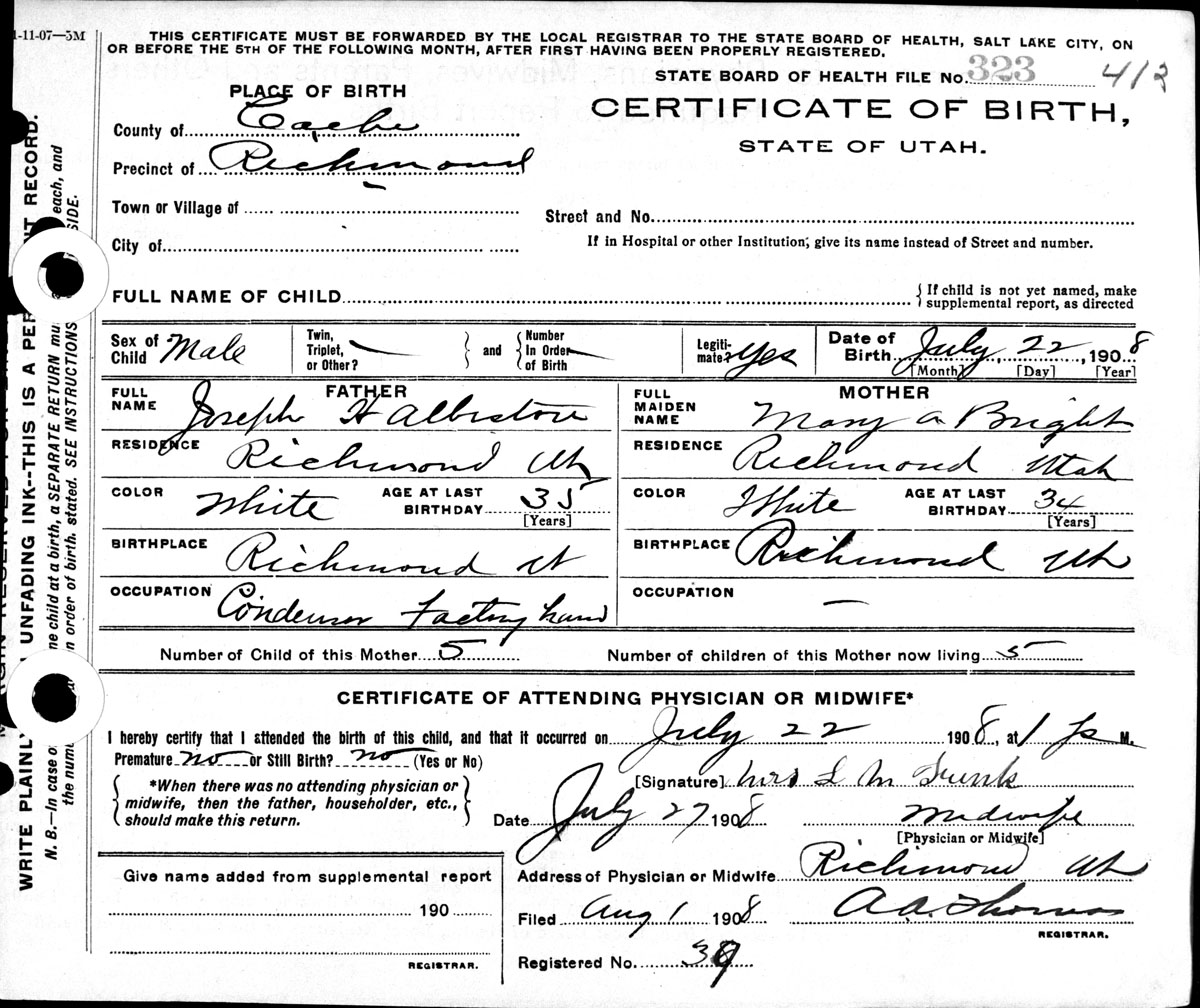 1-11-07—5M
THIS CERTIFICATE MUST BE FORWARDED BY THE LOCAL REGISTRAR TO THE STATE BOARD OF HEALTH, SALT LAKE CITY, ON
OR BEFORE THE 5TH OF THE FOLLOWING MONTH, AFTER FIRST HAVING BEEN PROPERLY REGISTERED.
STATE BOARD OF HEALTH FILE No. 323 413
PLACE OF BIRTH
CERTIFICATE OF BIRTH,
STATE OF UTAH.
County of Cache
Precinct of Richmond
Town or Village of
Street and No.
City of
If in Hospital or other Institution, give its name instead of Street and number.
FULL NAME OF CHILD
{If child is not yet named, make
supplemental report, as directed
Sex of Child Male
Twin, Triplet, or Other? — } and { Number In Order of Birth —
Legiti-mate? yes
Date of Birth July 22, 1908
[Month] [Day] [Year]
FATHER
FULL NAME Joseph H Albiston
MOTHER
FULL MAIDEN NAME Mary A Bright
RESIDENCE Richmond Ut
RESIDENCE Richmond Utah
COLOR White AGE AT LAST BIRTHDAY 35 [Years]
COLOR White AGE AT LAST BIRTHDAY 34 [Years]
BIRTHPLACE Richmond Ut
BIRTHPLACE Richmond Ut
OCCUPATION Factory hand
OCCUPATION —
Number of Child of this Mother 5
Number of children of this Mother now living 5
CERTIFICATE OF ATTENDING PHYSICIAN OR MIDWIFE*
I hereby certify that I attended the birth of this child, and that it occurred on July 22 1908, at 1 P M.
Premature no or Still Birth? no (Yes or No)
{*When there was no attending physician or
midwife, then the father, householder, etc.,
should make this return.}
[Signature] Mrs L M Funk
Date July 27 1908 Midwife
[Physician or Midwife]
Give name added from supplemental report
190
REGISTRAR.
Address of Physician or Midwife Richmond Ut
Filed Aug 1 1908 A A Thomas
REGISTRAR.
Registered No. 39
WRITE PLAINLY UNFADING INK--THIS IS A PER T RECORD.
N. B.—In case o ne child at a birth, a SEPARATE RETURN mu each, and
the num n order of birth, stated. SEE INSTRUCTIONS SIDE.